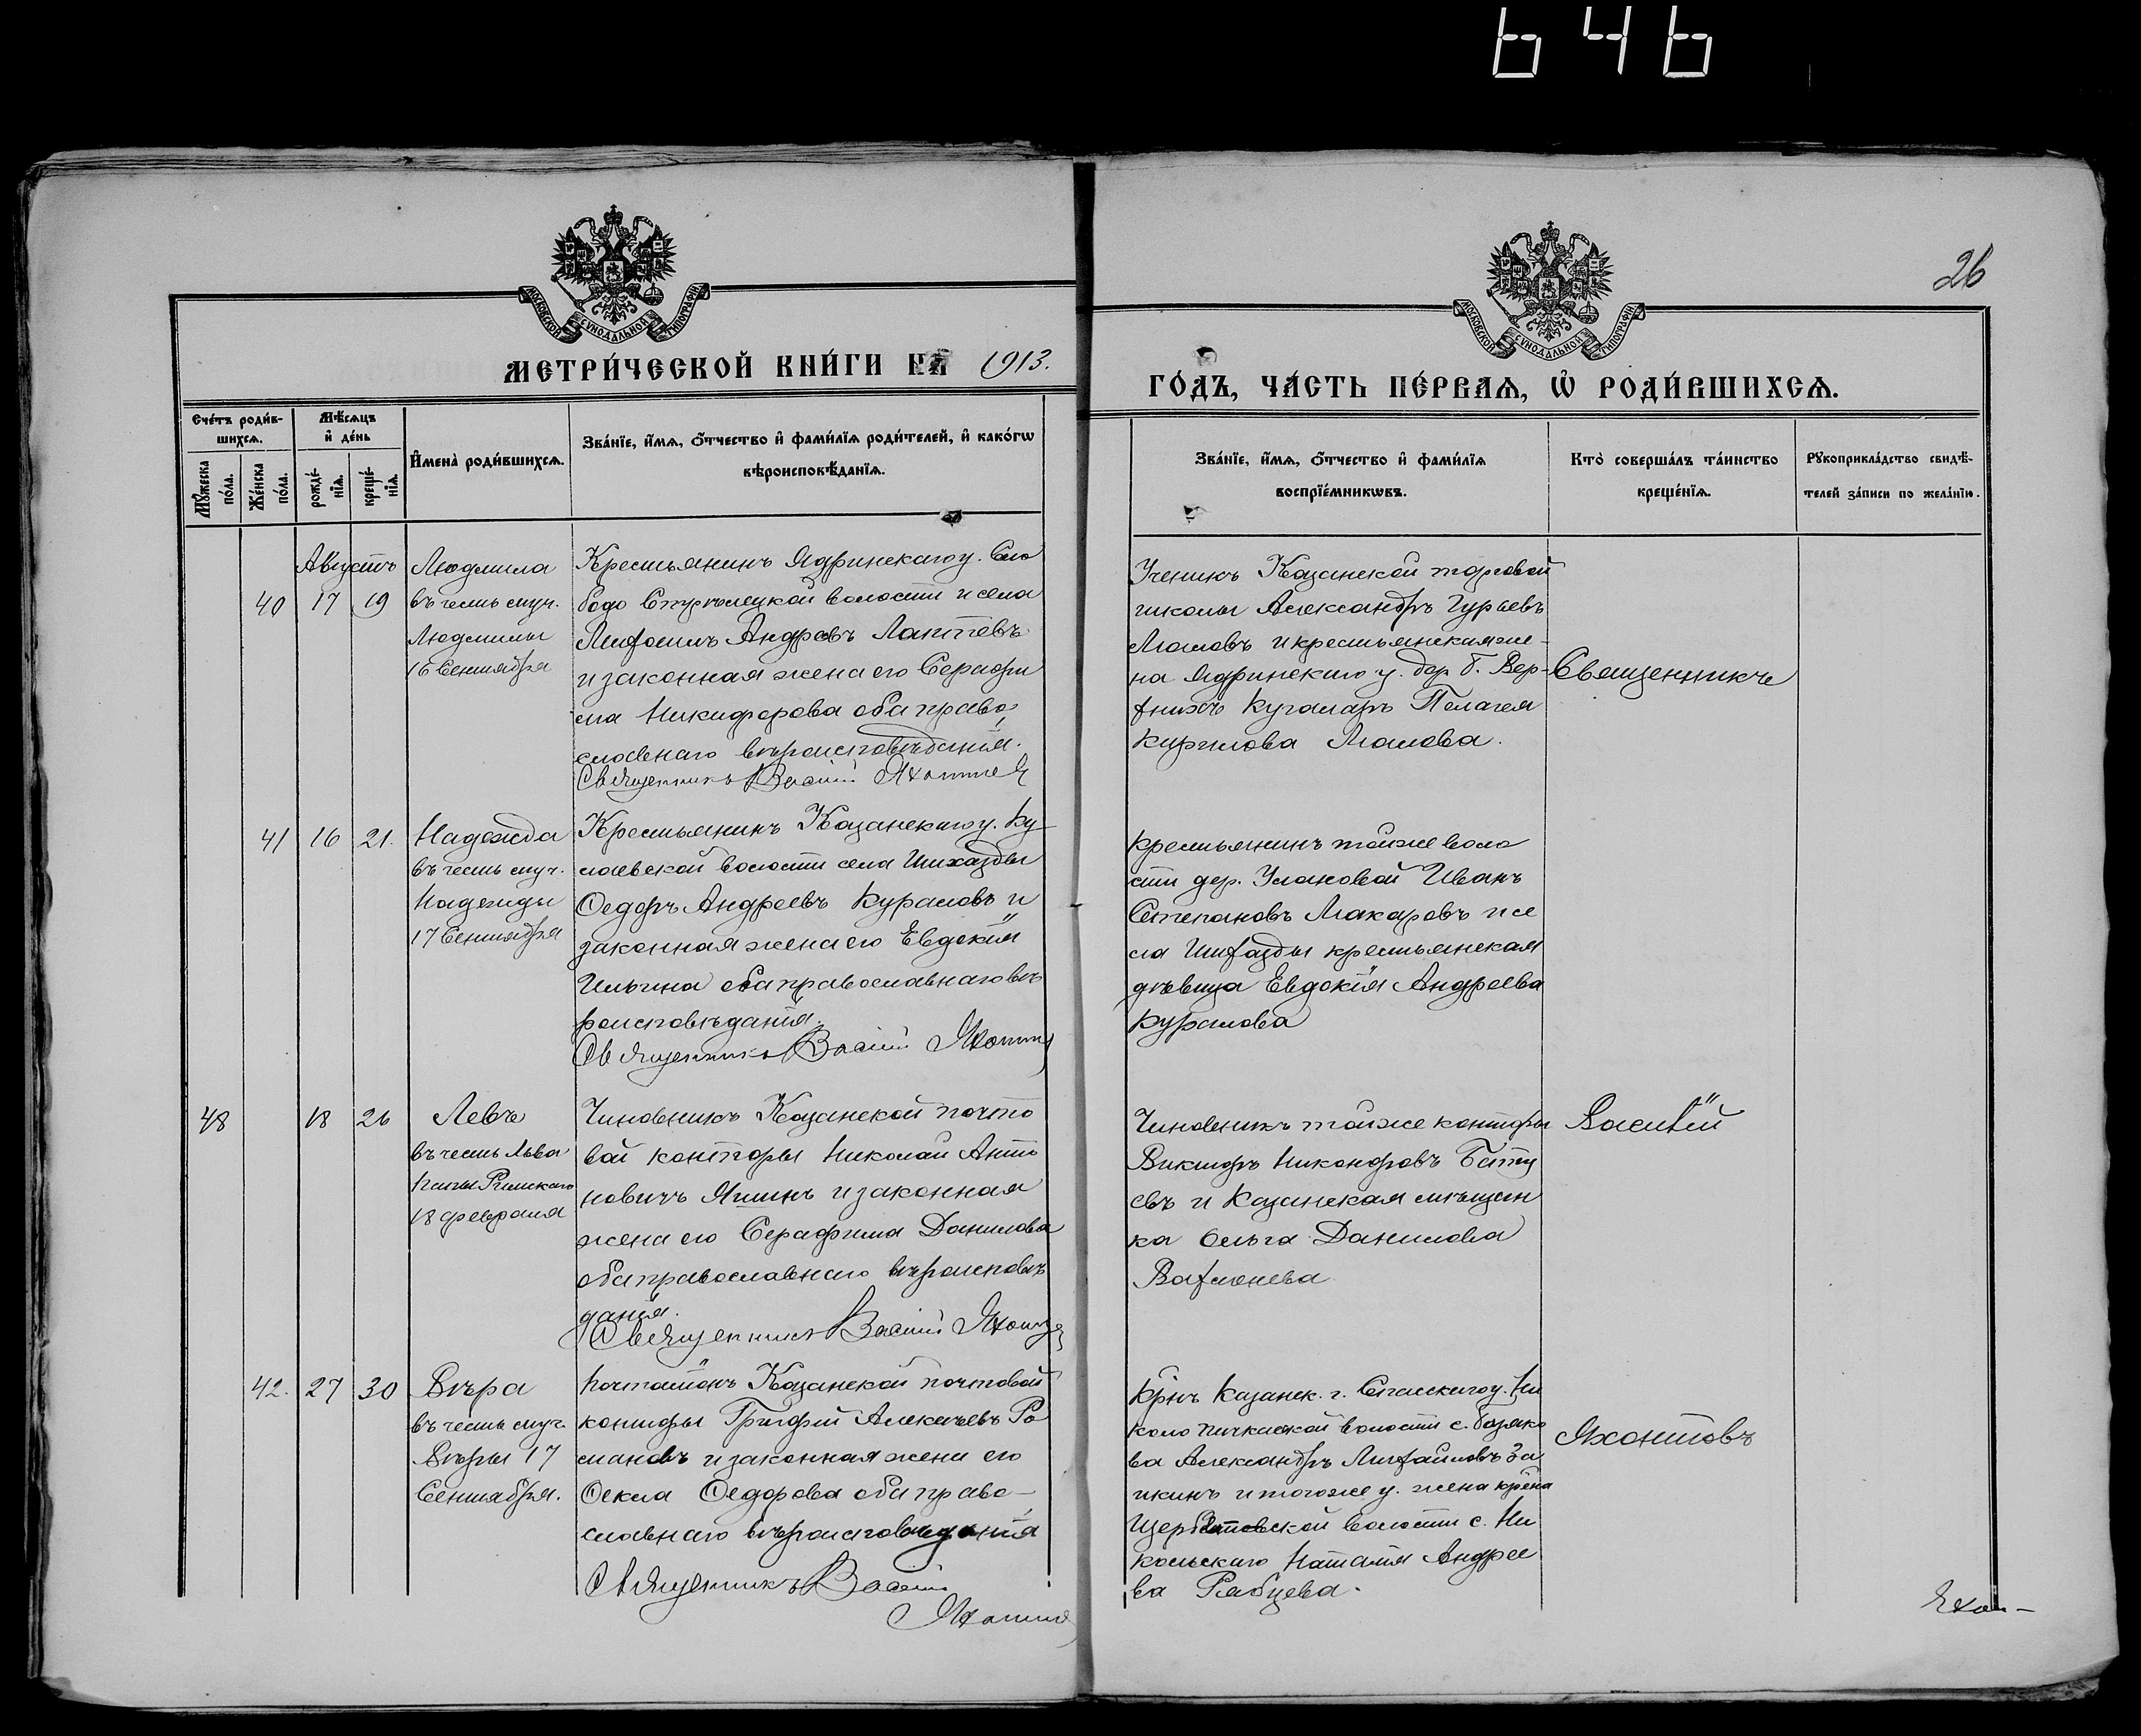 646
26
МОСКОВСКОЙ СѴНОДАЛЬНОЙ ТИПОГРАФІИ
МОСКОВСКОЙ СѴНОДАЛЬНОЙ ТИПОГРАФІИ
МЕТРИ́ЧЕСКОЙ КНИ́ГИ НА 1913.
ГО́ДЪ, ЧА́СТЬ ПЕ́РВАѦ, Ѡ҆ РОДИ́ВШИХСѦ.
Сче́тъ роди́в-
шихсѧ.
Мꙋ́жеска по́ла.
Же́нска по́ла.
Мѣ́сѧцъ
и҆ де́нь
рожде́-
нїѧ.
креще́-
нїѧ.
И҆мена̀ роди́вшихсѧ.
Зва́нїе, и҆́мѧ, ѻ҆́тчество и҆ фами́лїѧ роди́телей, и҆ како́гѡ
вѣроисповѣ́данїѧ.
Зва́нїе, и҆́мѧ, ѻ҆́тчество и҆ фами́лїѧ
воспрїе́мникѡвъ.
Кто̀ соверша́лъ та́инство
креще́нїѧ.
Рꙋкоприкла́дство свидѣ́-
телей за́писи по жела́нїю.
Августъ
40 17 19
Людмила
въ честь муч.
Людмилы
16 Сентября
Крестьянинъ Ядринскаго у. Сло
бодо Стрѣлецкой волости и села
Андреевъ Лаптевъ
и законная жена его Серафи
ма Никифорова оба право
славнаго вѣроисповѣданія.
Священникъ Василій Яхонтов
Ученикъ Казанской торговой
школы Александръ Гурьевъ
Маловъ и крестьянская же-
на Ядринскаго у. дер. б. Вер-
хнихъ Кугаларъ Пелагея
Кирилова Малова.
Священникъ
41 16 21.
Надежда
въ честь муч.
Надежды
17 Сентября
Крестьянинъ Казанскаго у. Ку
лаевской волости села Шихазды
Ѳедоръ Андреевъ Курамовъ и
законная жена его Евдокія
Ильина оба православнаго вѣ
роисповѣданія.
Священникъ Василій Яхонтов
крестьянинъ тойже воло
сти дер. Улаковой Иванъ
Степановъ Макаровъ и се
ла Шихазды крестьянская
дѣвица Евдокія Андреева
Курамова
48 18 26
Левъ
въ честь Льва
папы Римскаго
18 февраля
Чиновникъ Казанской почто
вой конторы Николай Анто
новичъ Яшинъ и законная
жена его Серафима Данилова
оба православнаго вѣроисповѣ
данія.
Священникъ Василій Яхонтов
Чиновникъ тойже конторы
Викторъ Никоноровъ Батуе
евъ и Казанская мѣщан
ка Ольга Данилова
Вахмонева
Василій
42. 27 30
Вѣра
въ честь муч.
Вѣры 17
Сентября.
Почтальонъ Казанской почтовой
конторы Григорій Алексѣевъ Ро
мановъ и законная жена его
Ѳекла Ѳедорова оба право-
славнаго вѣроисповѣданія
Священникъ Василій
Яхонтов
Крнъ Казанск. г. Спасскаго у. Ни
коло пичкасской волости с.
ва Александръ Михайловъ За
икинъ и тогоже у. жена крена
Щербетовской волости с. Ни
кольскаго Наталія Андрее
ва Рябцева.
Яхонтовъ
Яхон-